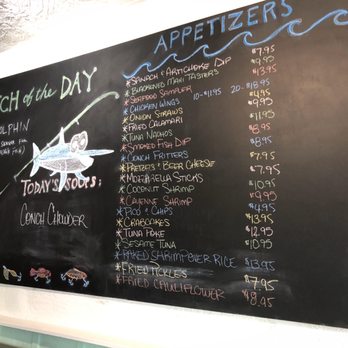 CH of the DAY
OLPHIN
TODAY'S SOUPS:
CONCH CHOWDER
APPETIZERS
*SPINACH & ARTICHOKE DIP $7.95
*BLACKENED MAHI TASTERS $9.95
*SEAFOOD SAMPLER $13.95
*CHICKEN WINGS 10-$11.95 20-$18.95
*ONION STRAWS $4.95
*FRIED CALAMARI $9.95
*TUNA NACHOS $11.95
*SMOKED FISH DIP $8.95
*CONCH FRITTERS $8.95
*PRETZELS & BEER CHEESE $7.95
*MOZZARELLA STICKS $7.95
*COCONUT SHRIMP $10.95
*CAYENNE SHRIMP $9.95
*PICO & CHIPS $4.95
*CRABCAKES $13.95
*TUNA POKE $12.95
*SESAME TUNA $10.95
*BAKED SHRIMP OVER RICE $13.95
*FRIED PICKLES $7.95
*FRIED CAULIFLOWER $8.95